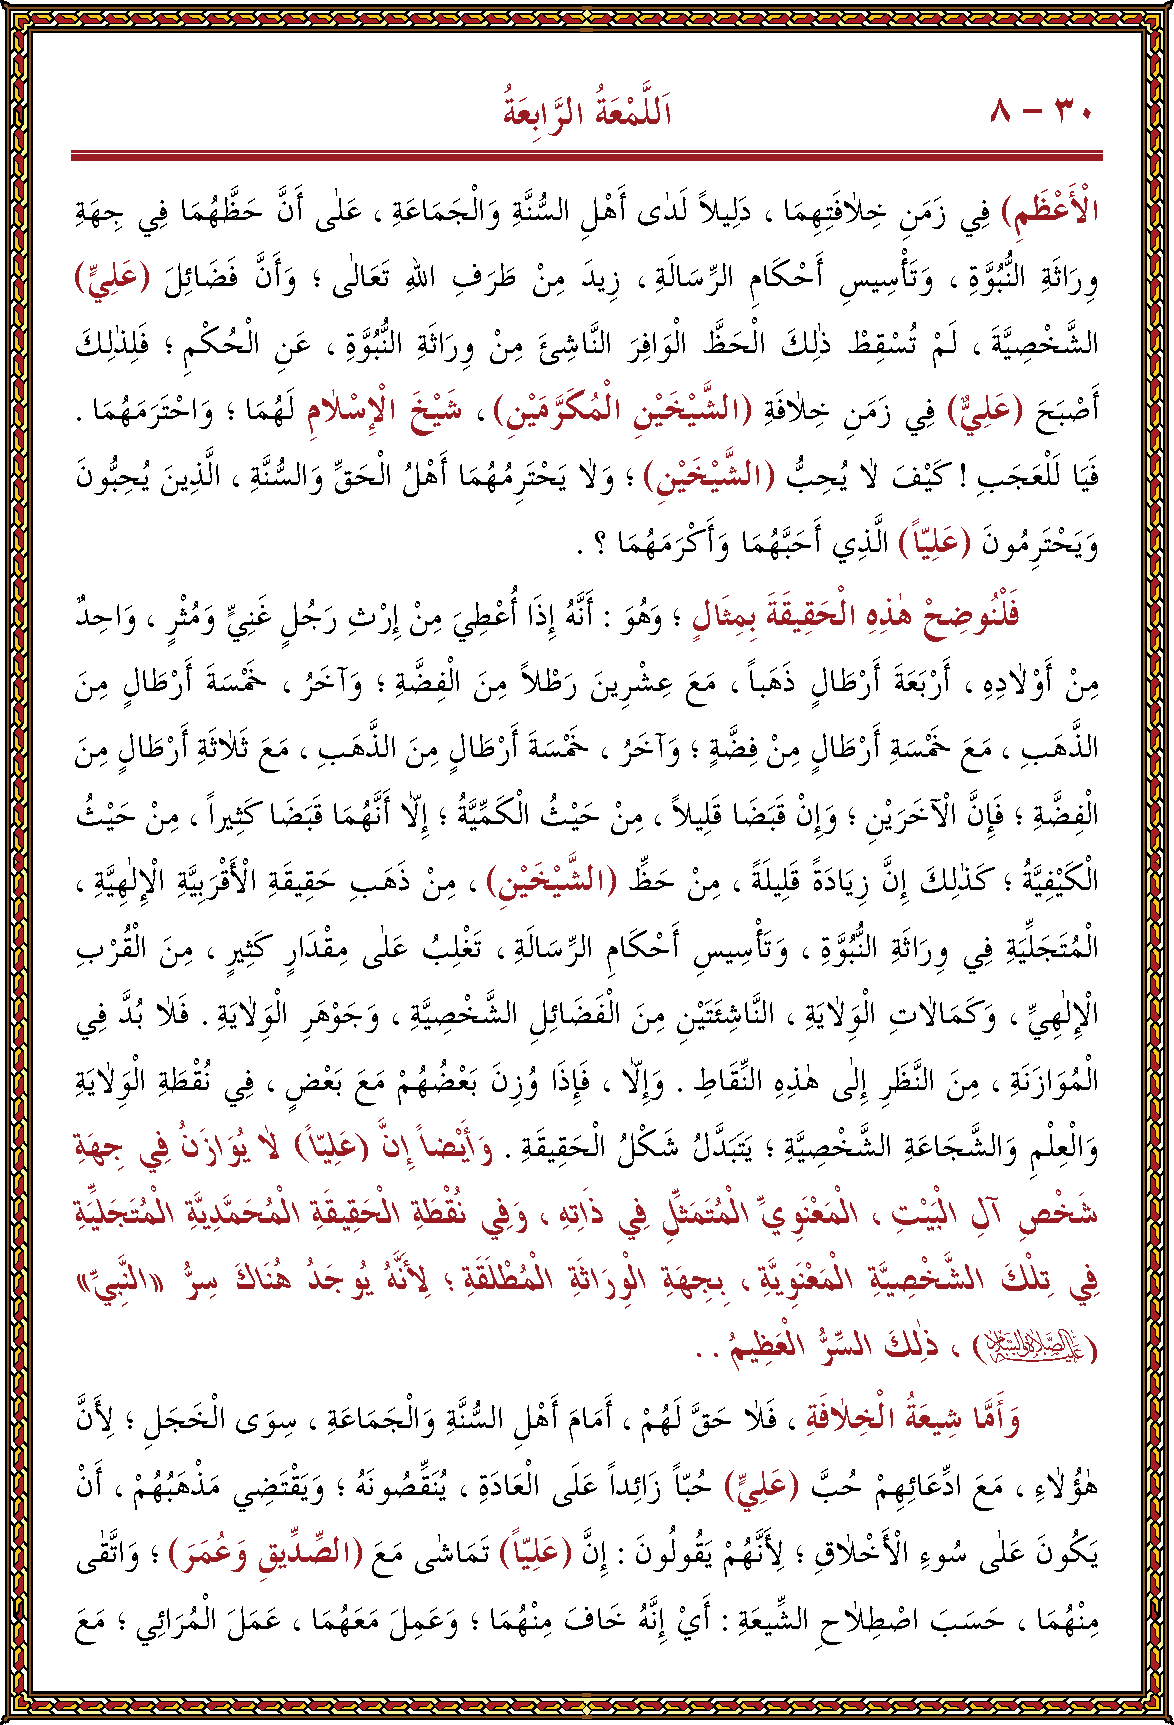 ٣٠ – ٨ اَللَّمْعَةُ الرَّابِعَةُ
الْأَعْظَمِ) فِي زَمَنِ خِلَافَتِهِمَا ، دَلِيلاً لَدٰى أَهْلِ السُّنَّةِ وَالْجَمَاعَةِ ، عَلٰى أَنَّ حَظَّهُمَا فِي جِهَةِ
وِرَاثَةِ النُّبُوَّةِ ، وَتَأْسِيسِ أَحْكَامِ الرِّسَالَةِ ، زِيدَ مِنْ طَرَفِ اللهِ تَعَالٰى ؛ وَأَنَّ فَضَائِلَ (عَلِيٍّ)
الشَّخْصِيَّةَ ، لَمْ تُسْقِطْ ذٰلِكَ الْحَظَّ الْوَافِرَ النَّاشِئَ مِنْ وِرَاثَةِ النُّبُوَّةِ ، عَنِ الْحُكْمِ ؛ فَلِذٰلِكَ
أَصْبَحَ (عَلِيٌّ) فِي زَمَنِ خِلَافَةِ (الشَّيْخَيْنِ الْمُكَرَّمَيْنِ) ، شَيْخَ الْإِسْلَامِ لَهُمَا ؛ وَاحْتَرَمَهُمَا .
فَيَا لَلْعَجَبِ ! كَيْفَ لَا يُحِبُّ (الشَّيْخَيْنِ) ؛ وَلَا يَحْتَرِمُهُمَا أَهْلُ الْحَقِّ وَالسُّنَّةِ ، الَّذِينَ يُحِبُّونَ
وَيَحْتَرِمُونَ (عَلِيّاً) الَّذِي أَحَبَّهُمَا وَأَكْرَمَهُمَا ؟ .
فَلْنُوضِحْ هٰذِهِ الْحَقِيقَةَ بِمِثَالٍ ؛ وَهُوَ : أَنَّهُ إِذَا أُعْطِيَ مِنْ إِرْثِ رَجُلٍ غَنِيٍّ وَمُثْرٍ ، وَاحِدٌ
مِنْ أَوْلَادِهِ ، أَرْبَعَةَ أَرْطَالٍ ذَهَباً ، مَعَ عِشْرِينَ رَطْلاً مِنَ الْفِضَّةِ ؛ وَآخَرُ ، خَمْسَةَ أَرْطَالٍ مِنَ
الذَّهَبِ ، مَعَ خَمْسَةِ أَرْطَالٍ مِنْ فِضَّةٍ ؛ وَآخَرُ ، خَمْسَةَ أَرْطَالٍ مِنَ الذَّهَبِ ، مَعَ ثَلَاثَةِ أَرْطَالٍ مِنَ
الْفِضَّةِ ؛ فَإِنَّ الْآخَرَيْنِ ؛ وَإِنْ قَبَضَا قَلِيلاً ، مِنْ حَيْثُ الْكَمِّيَّةُ ؛ إِلَّا أَنَّهُمَا قَبَضَا كَثِيراً ، مِنْ حَيْثُ
الْكَيْفِيَّةُ ؛ كَذٰلِكَ إِنَّ زِيَادَةً قَلِيلَةً ، مِنْ حَظِّ (الشَّيْخَيْنِ) ، مِنْ ذَهَبِ حَقِيقَةِ الْأَقْرَبِيَّةِ الْإِلٰهِيَّةِ ،
الْمُتَجَلِّيَةِ فِي وِرَاثَةِ النُّبُوَّةِ ، وَتَأْسِيسِ أَحْكَامِ الرِّسَالَةِ ، تَغْلِبُ عَلٰى مِقْدَارٍ كَثِيرٍ ، مِنَ الْقُرْبِ
الْإِلٰهِيِّ ، وَكَمَالَاتِ الْوَلَايَةِ ، النَّاشِئَتَيْنِ مِنَ الْفَضَائِلِ الشَّخْصِيَّةِ ، وَجَوْهَرِ الْوَلَايَةِ . فَلَا بُدَّ فِي
الْمُوَازَنَةِ ، مِنَ النَّظَرِ إِلٰى هٰذِهِ النِّقَاطِ . وَإِلَّا ، فَإِذَا وُزِنَ بَعْضُهُمْ مَعَ بَعْضٍ ، فِي نُقْطَةِ الْوَلَايَةِ
وَالْعِلْمِ وَالشَّجَاعَةِ الشَّخْصِيَّةِ ؛ يَتَبَدَّلُ شَكْلُ الْحَقِيقَةِ . وَأَيْضاً إِنَّ (عَلِيّاً) لَا يُوَازَنُ فِي جِهَةِ
شَخْصِ آلِ الْبَيْتِ ، الْمَعْنَوِيِّ الْمُتَمَثِّلِ فِي ذَاتِهِ ، وَفِي نُقْطَةِ الْحَقِيقَةِ الْمُحَمَّدِيَّةِ الْمُتَجَلِّيَةِ
فِي تِلْكَ الشَّخْصِيَّةِ الْمَعْنَوِيَّةِ ، بِجِهَةِ الْوِرَاثَةِ الْمُطْلَقَةِ ؛ لِأَنَّهُ يُوجَدُ هُنَاكَ سِرُّ «النَّبِيِّ»
(عَلَيْهِ الصَّلَاةُ وَالسَّلَامُ) ، ذٰلِكَ السِّرُّ الْعَظِيمُ . .
وَأَمَّا شِيعَةُ الْخِلَافَةِ ، فَلَا حَقَّ لَهُمْ ، أَمَامَ أَهْلِ السُّنَّةِ وَالْجَمَاعَةِ ، سِوَى الْخَجَلِ ؛ لِأَنَّ
هٰؤُلَاءِ ، مَعَ ادِّعَائِهِمْ حُبَّ (عَلِيٍّ) حُبّاً زَائِداً عَلَى الْعَادَةِ ، يُنَقِّصُونَهُ ؛ وَيَقْتَضِي مَذْهَبُهُمْ ، أَنْ
يَكُونَ عَلٰى سُوءِ الْأَخْلَاقِ ؛ لِأَنَّهُمْ يَقُولُونَ : إِنَّ (عَلِيّاً) تَمَاشٰى مَعَ (الصِّدِّيقِ وَعُمَرَ) ؛ وَاتَّقٰى
مِنْهُمَا ، حَسَبَ اصْطِلَاحِ الشِّيعَةِ : أَيْ إِنَّهُ خَافَ مِنْهُمَا ؛ وَعَمِلَ مَعَهُمَا ، عَمَلَ الْمُرَائِي ؛ مَعَ